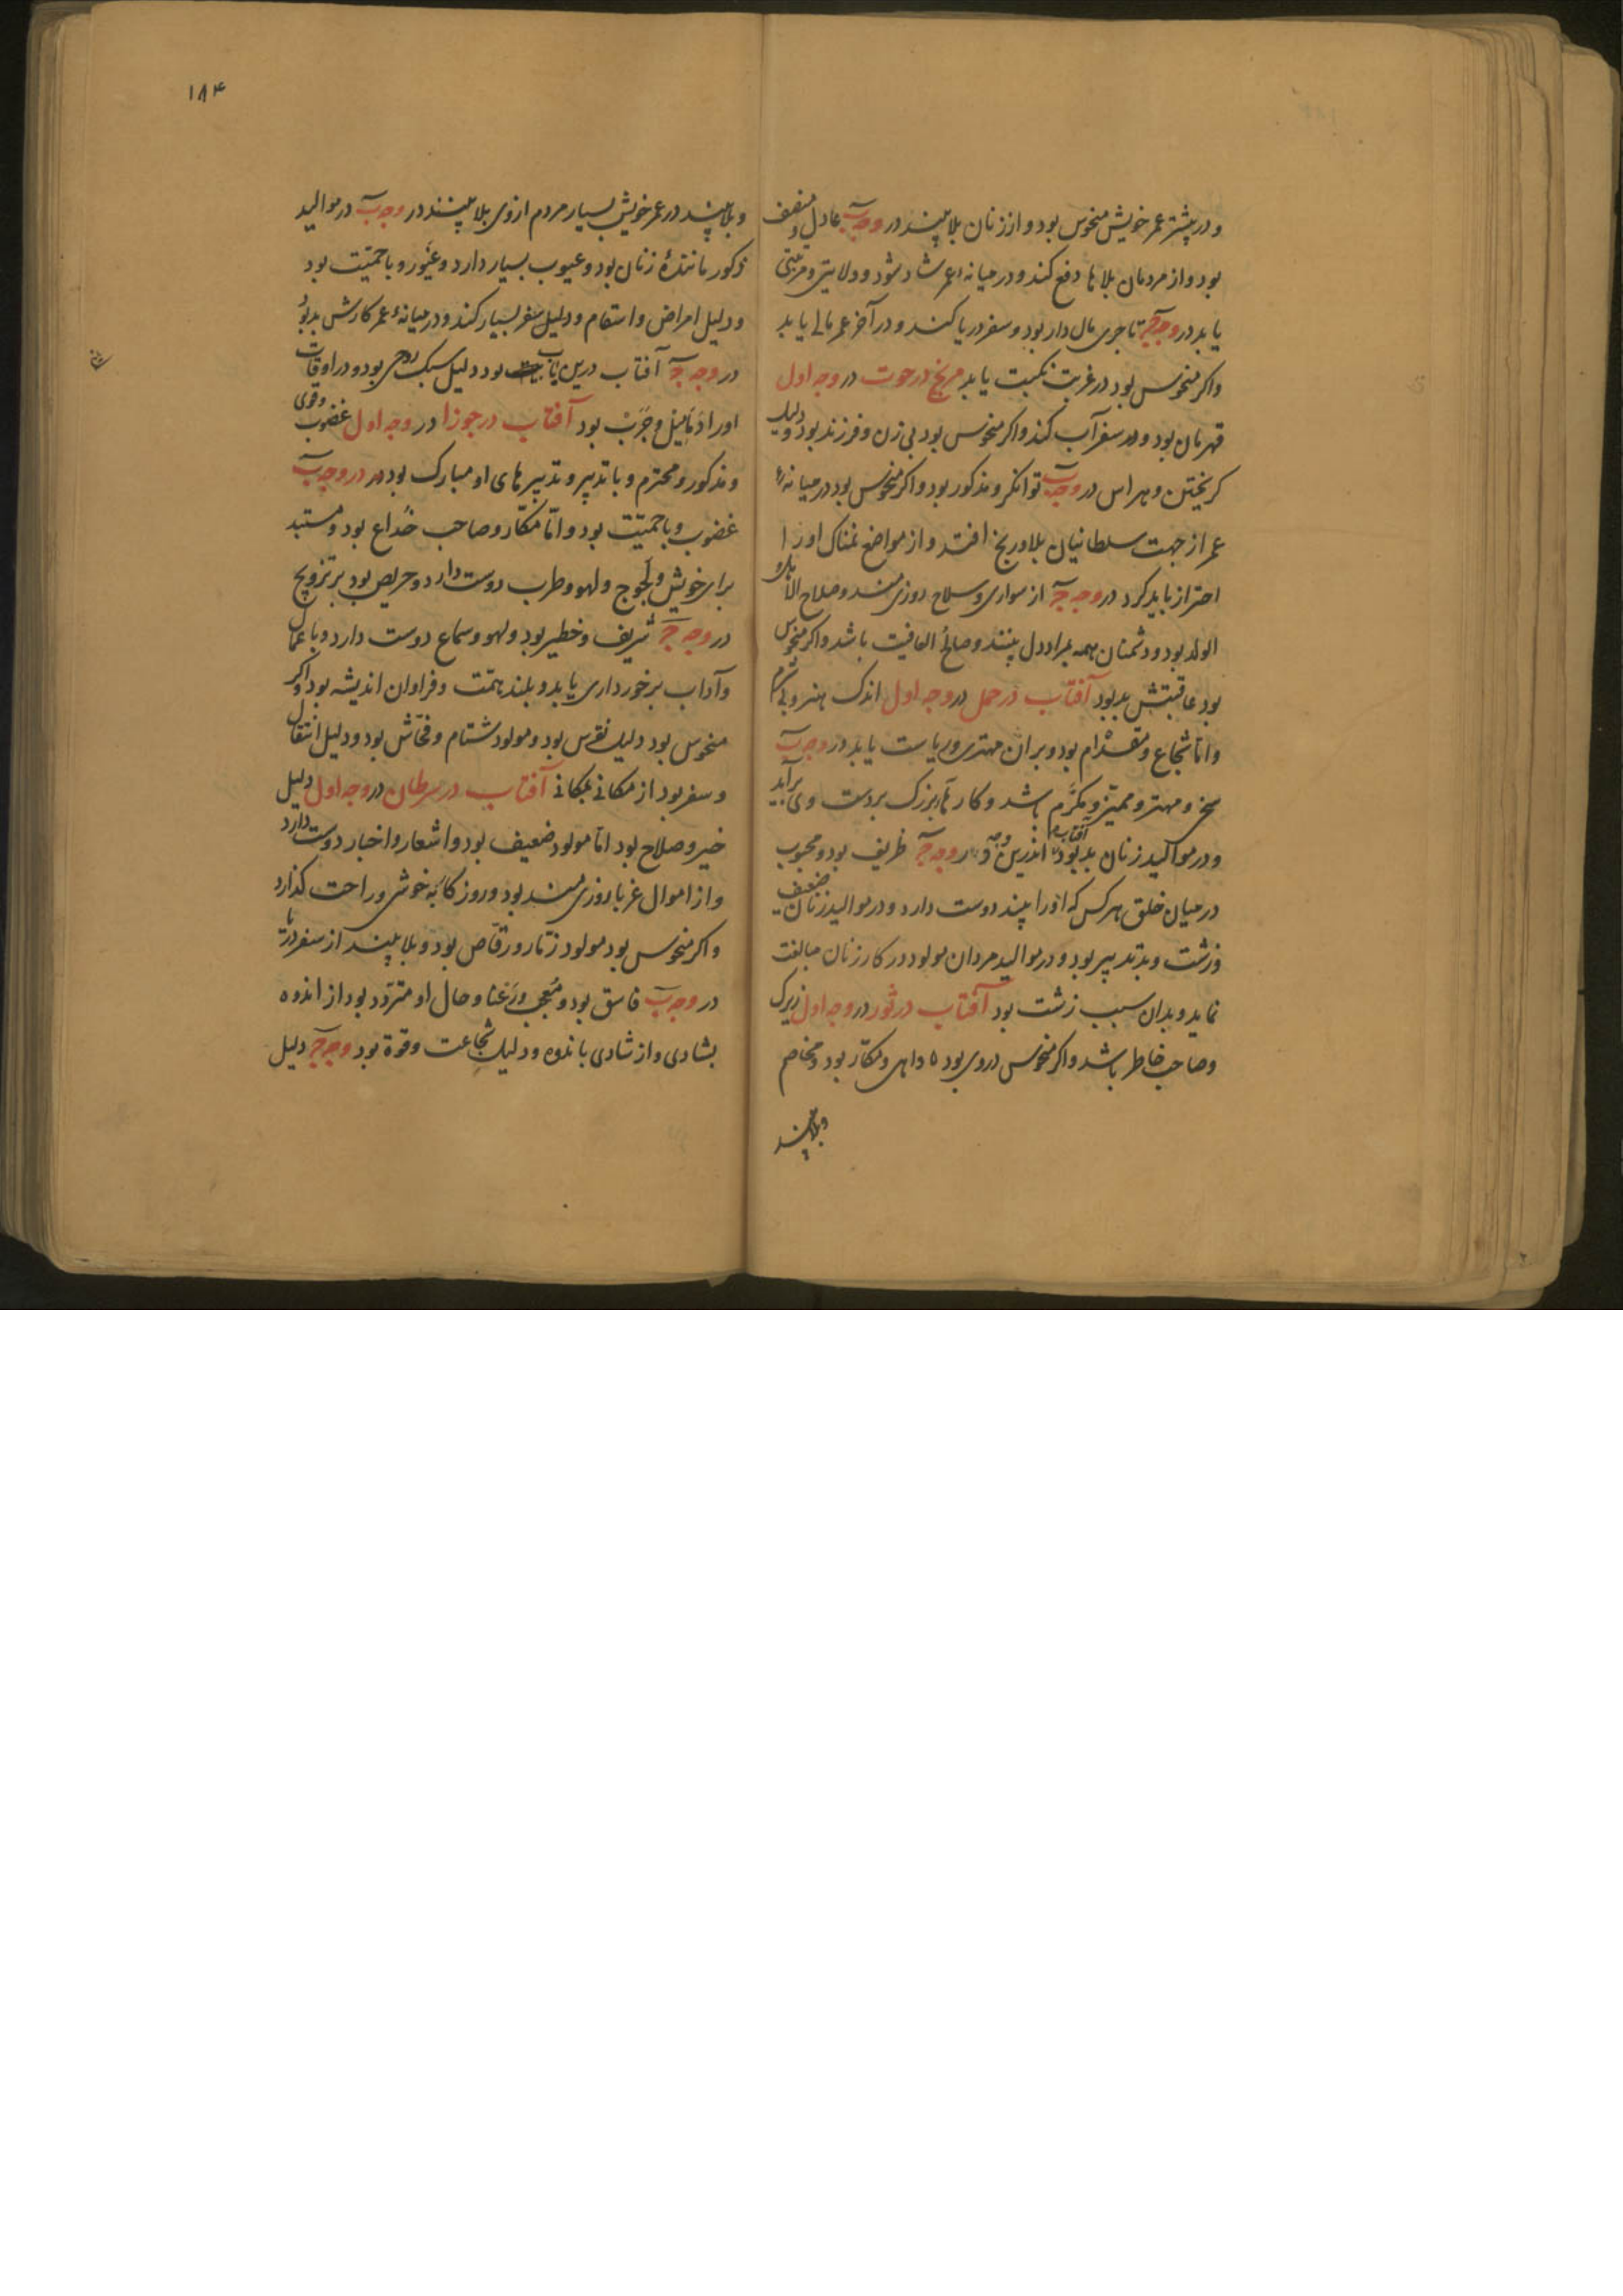 و در پیشتر عمر خویش منحوس بود و از زنان بلا بیند در وجه ب عادل و منصف
بود و از مردمان بلاها دفع کند و در میانه عمر شاد شود و ولایتی و مرتبتی
یابد در وجه ج تاجری مال دار بود و سفر دریا کند و در آخر عمر مالی یابد
واکر منحوس بود در غربت نکبت یابد مریخ در حوت در وجه اول
قهرمان بود و سفر آب کند واکر منحوس بود بی زن و فرزند بود و دلیل
کریختن و هراس در وجه ب توانکر و مذکور بود واکر منحوس بود در میانهٔ
عمر از جهت سلطانیان بلا و رنج افتد و از مواضع نمناک او را
احتراز باید کرد در وجه ج از سواری و سلاح روزی مند و صلاح
الولد بود و دشمنان همه بمراد دل بیند و صالح العافیت باشد واکر منحوس
بود عاقبتش بد بود آفتاب در حمل در وجه اول اندک هنر و بی شرم
و اما شجاع و مقدام بود و بر آن مهتری و ریاست یابد در وجه ب
سخی و مهتر و ممیز و مکرم باشد و کارهاء بزرک بر دست وی برآید
و در موالید زنان بد بود آفتاب اندرین وجه در وجه ج ظریف بود و محبوب
در میان خلق هر کس که او را بیند دوست دارد و در موالید زنان ضعیف
و زشت و بد تدبیر بود و در موالید مردان مولود در کار زنان مبالغت
نماید و بدان سبب زشت بود آفتاب در ثور در وجه اول زیرک
و صاحب خاطر باشد واکر منحوس در وی بود داهی و مکار بود و مخاصم
و بلا بیند
۱۸۴
و بلا بیند در عمر خویش بسیار مردم ازوی بلا بینند در وجه ب در موالید
ذکور مانندهٔ زنان بود و عیوب بسیار دارد و غیور و با حمیت بود
و دلیل امراض و اسقام و دلیل سفر بسیار کند و در میانهٔ عمر کارش بد بود
در وجه ج آفتاب درین باب بود دلیل سبک روحی بود و در اوقات
او را دمامیل و جرب بود آفتاب در جوزا در وجه اول غضوب و قوی
و مذکور و محترم و با تدبیر و تدبیرهای او مبارک بود در وجه ب
غضوب و با حمیت بود و اما مکار و صاحب خداع بود و مستبد
برای خویش و لجوج و لهو و طرب دوست دارد و حریص بود بر تزویج
در وجه ج شریف و خطیر بود و لهو و سماع دوست دارد و با عمال
و آداب برخورداری یابد و بلند همت و فراوان اندیشه بود واکر
منحوس بود دلیل نقرس بود و مولود شتام و فحاش بود و دلیل انتقال
و سفر بود از مکانی بمکانی آفتاب در سرطان در وجه اول دلیل
خیر و صلاح بود اما مولود ضعیف بود و اشعار و اخبار دوست دارد
و از اموال غربا روزی مند بود و روزکار به خوشی و راحت کذارد
واکر منحوس بود مولود زمار و رقاص بود و بلا بیند از سفر دریا
در وجه ب فاسق بود و معجب و رعنا و حال او متردد بود از اندوه
بشادی و از شادی باندوه و دلیل شجاعت و قوة بود وجه ج دلیل